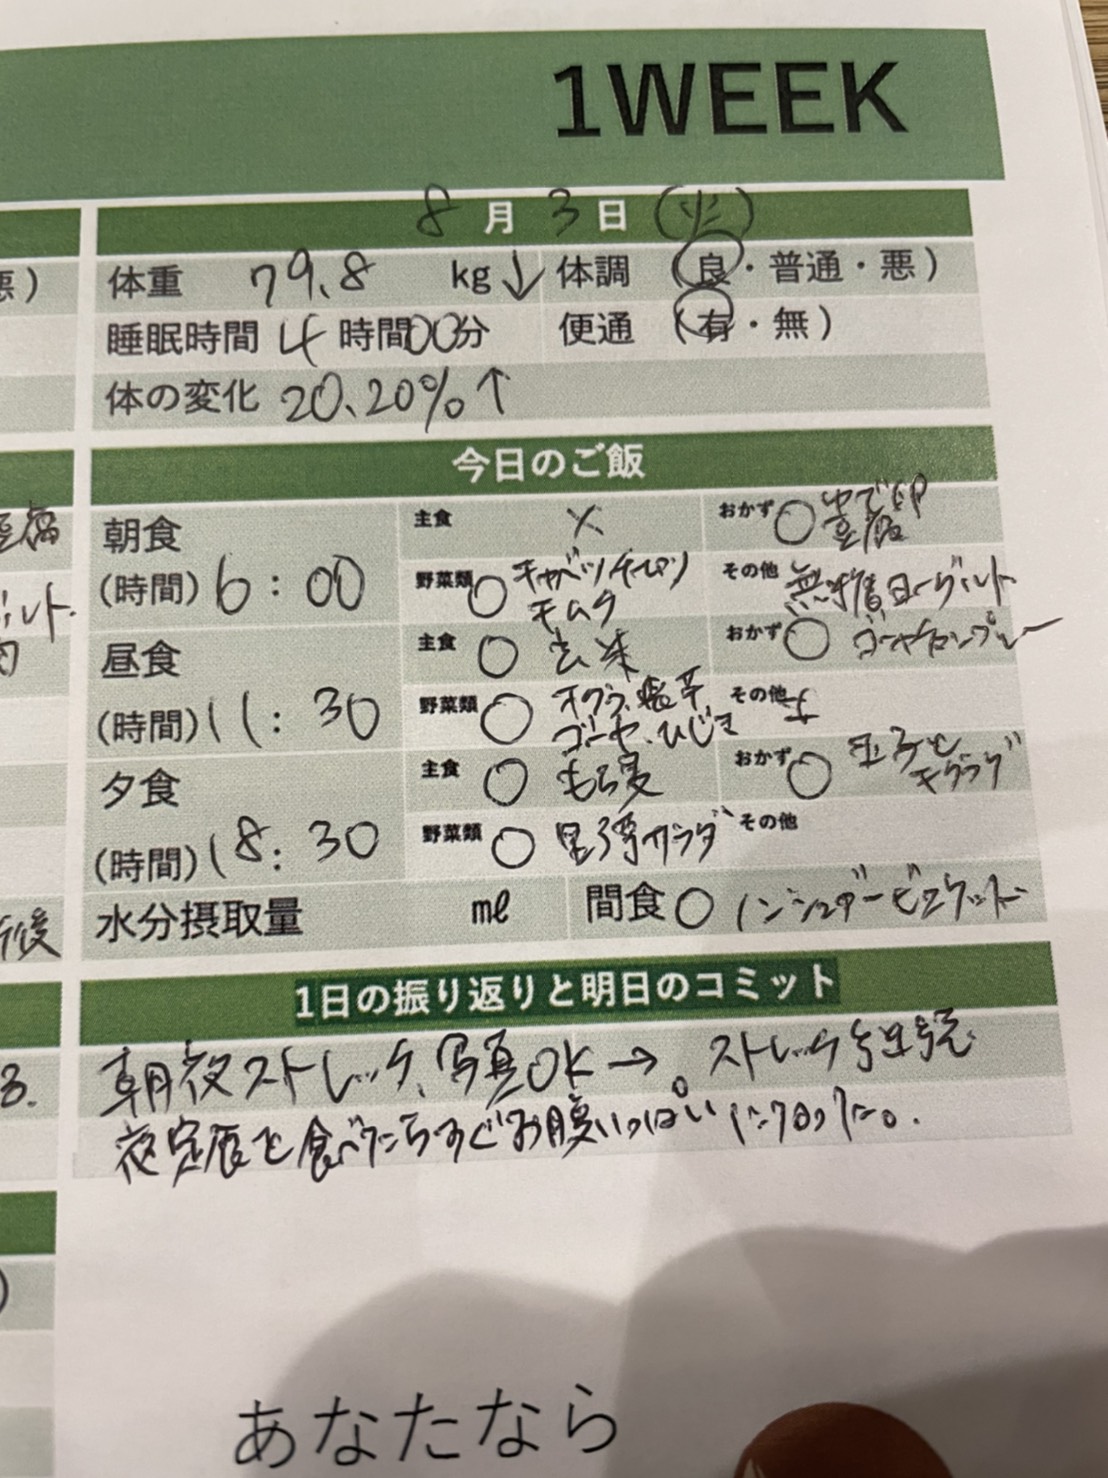 1WEEK
8月3日(火)
悪)
体重 79.8 kg↓ 体調 (良・普通・悪)
睡眠時間 4時間00分 便通 (有・無)
体の変化 20.20%↑
今日のご飯
朝食 主食 × おかず ○ ゆで卵
豆腐
(時間) 6:00 野菜類 ○ キャベツ
キムチ その他 無糖ヨーグルト
昼食 主食 ○ 玄米 おかず ○ ゴーヤチャンプルー
(時間) 11:30 野菜類 ○ オクラ
ゴーヤ、ひじき その他
夕食 主食 ○ もち麦 おかず ○ 玉子と
キクラゲ
(時間) 18:30 野菜類 ○ サラダ その他
水分摂取量 ml 間食 ○ ノンシュガービスケット
後
1日の振り返りと明日のコミット
朝夜ストレッチ、写真OK→。ストレッチ継続
夜定食を食べたらすぐお腹いっぱいになった。
3.
あなたなら